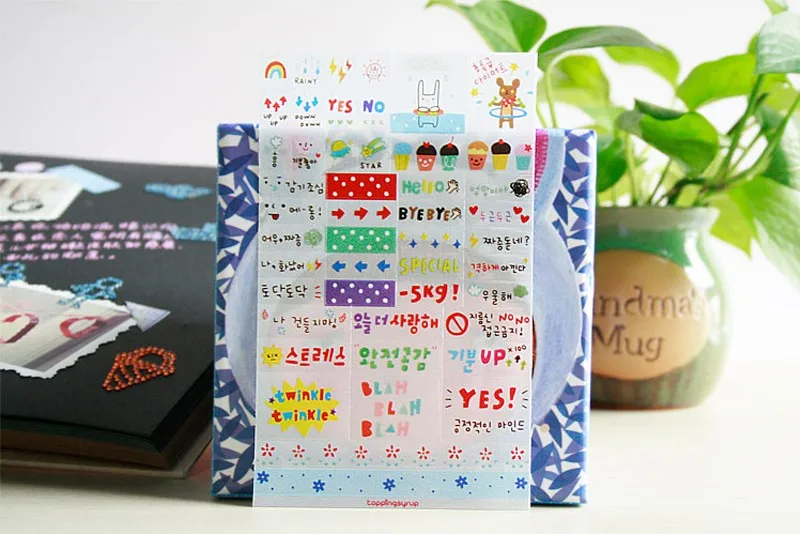 RAINY
초특급
다이어트
UP UP UP
DOWN DOWN DOWN
YES
NO
STAR
감기조심
Hello
엉망이야
메-롱!
BYE BYE
두근두근
어우~짜증
짜증돋네?
나, 화났어
SPECIAL
격하게 아낀다
토닥토닥
-5kg!
우울해
나 건들지마!
"오늘 더 사랑해
지름신 NO NO
접근금지!
스트레스
"완전공감"
기분 UP x100
twinkle
twinkle
BLAH
BLAH
BLAH
YES!
긍정적인 마인드
toppingsyrup
andma's
Mug